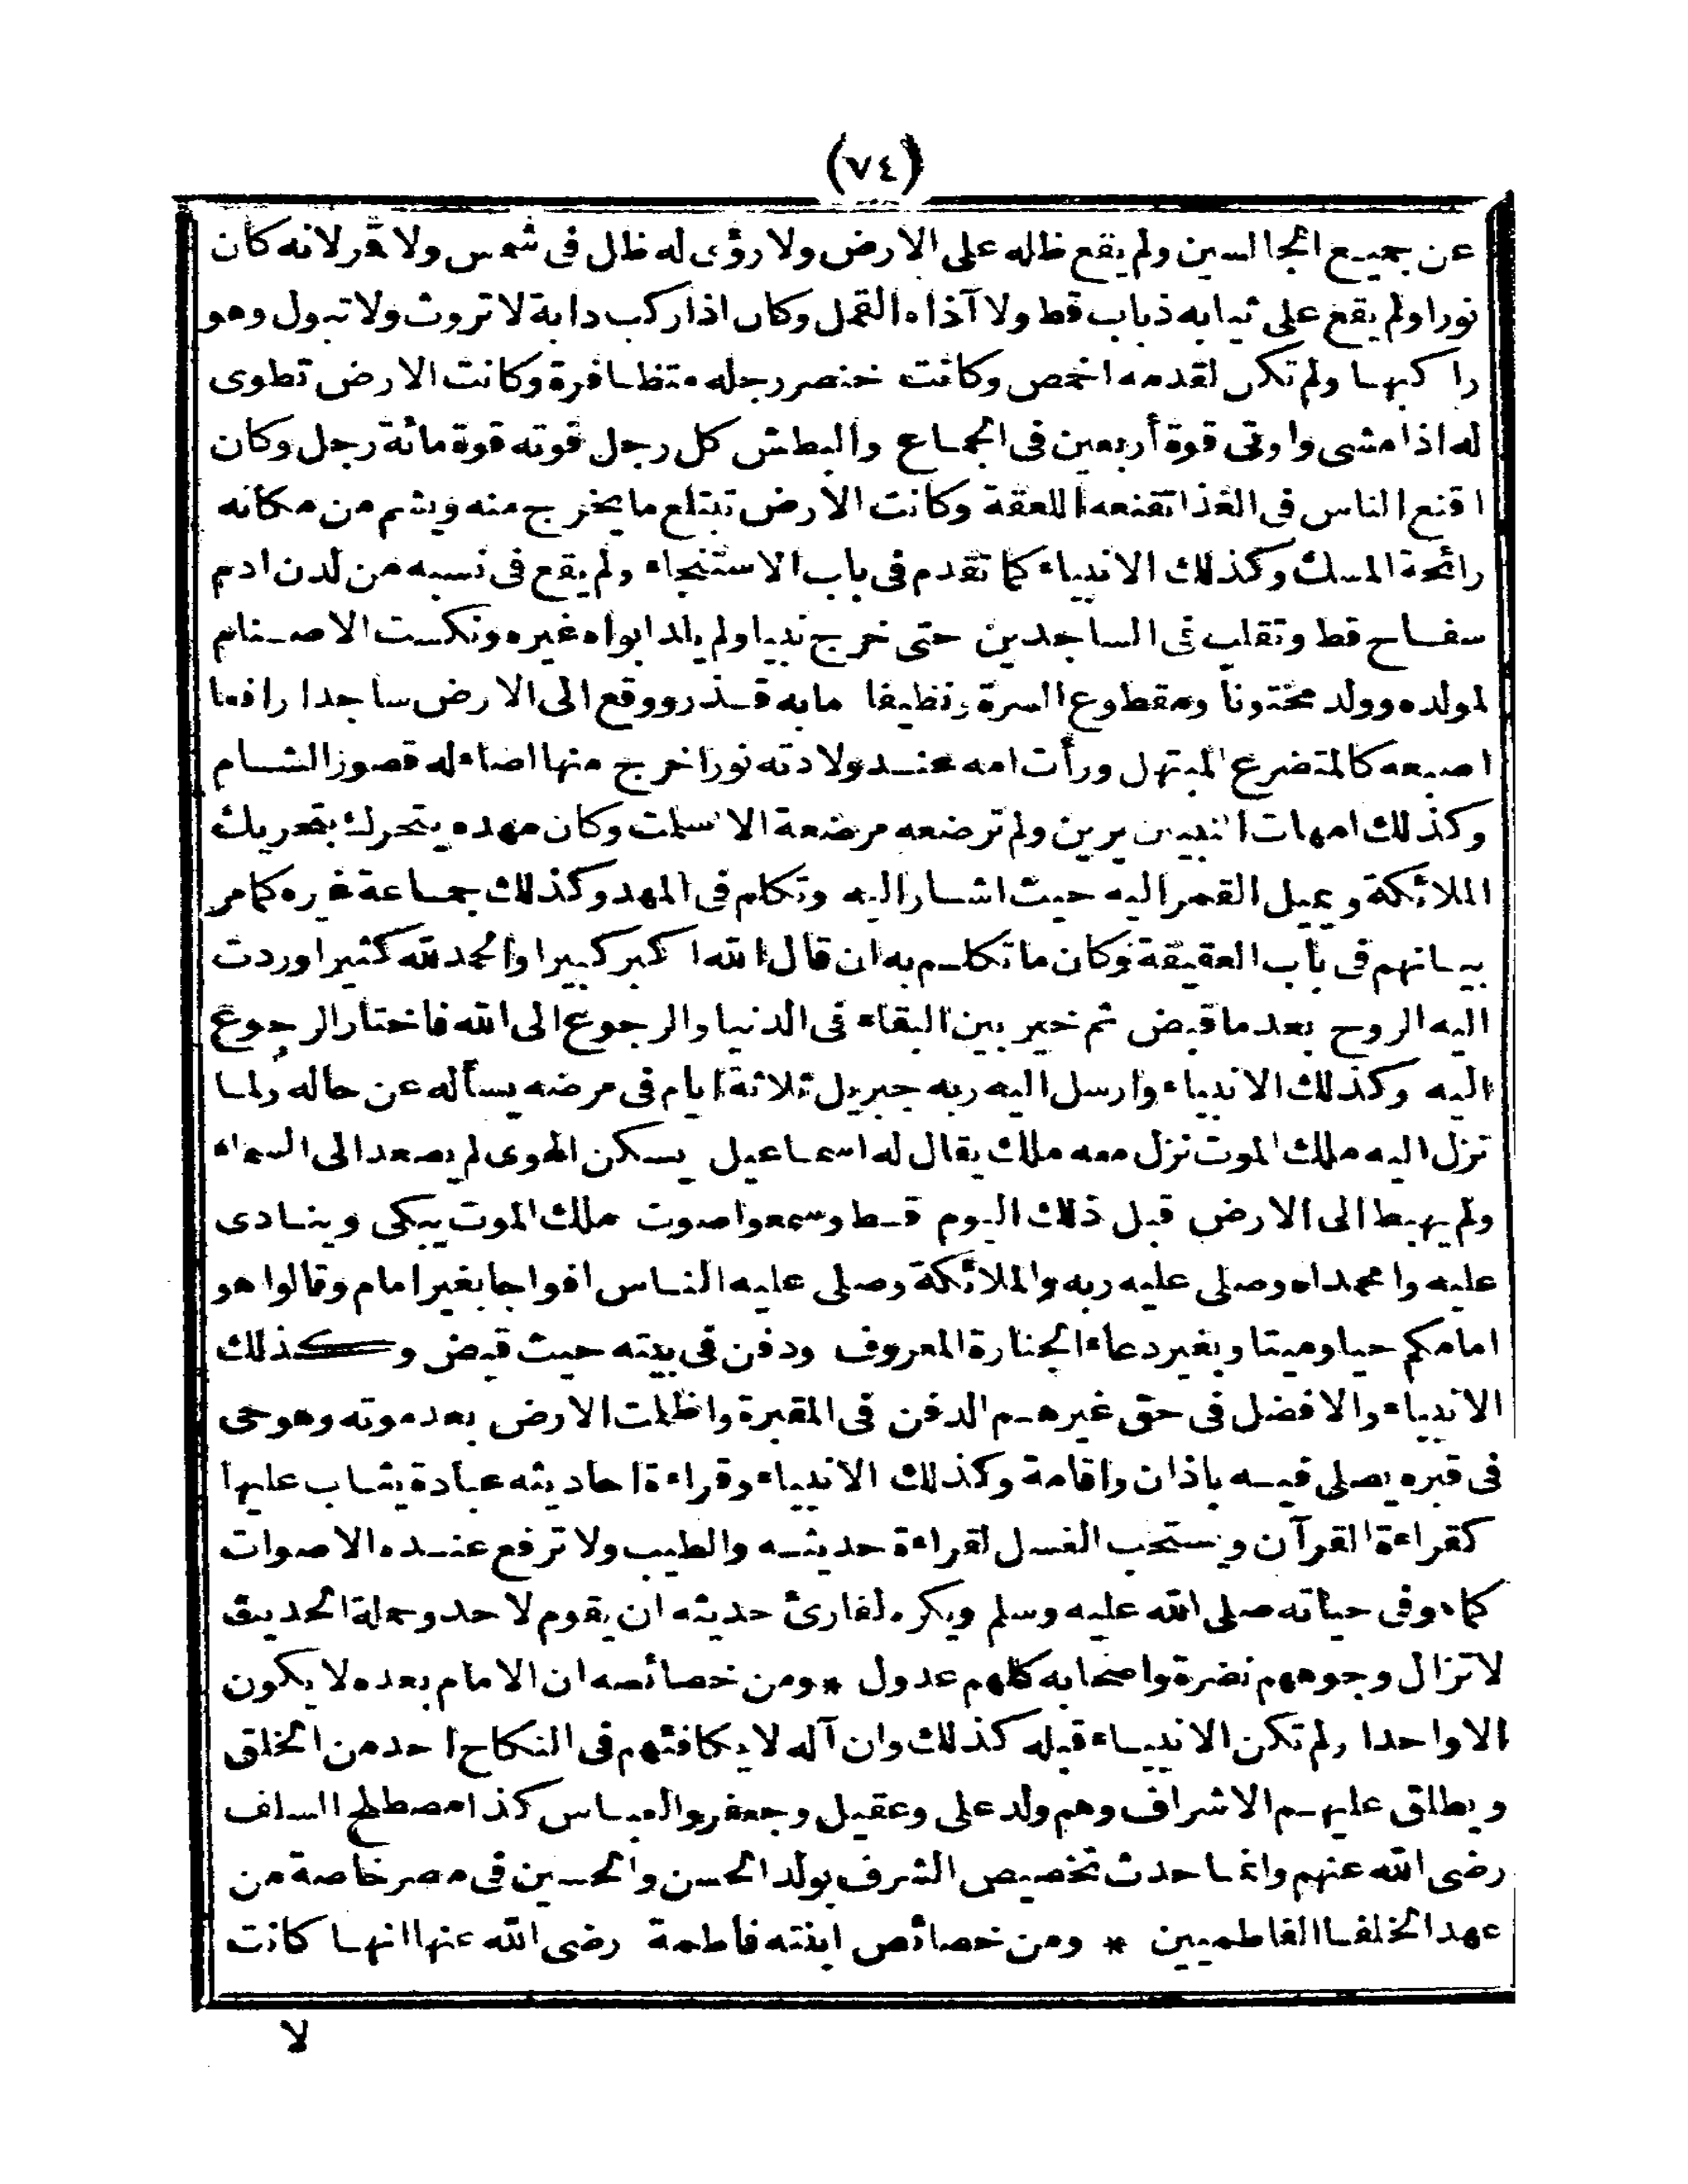 (٧٤)
عن جميع الجالسين ولم يقع ظله على الارض ولا رؤى له ظل فى شمس ولا قمر لانه كان
نورا ولم يقع على ثيابه ذباب قط ولا آذاه القمل وكان اذا ركب دابة لا تروث ولا تبول وهو
راكبها ولم تكن لقدمه اخمص وكانت خنصر رجله متظافرة وكانت الارض تطوى
له اذا مشى واوتى قوة أربعين فى الجماع والبطش كل رجل قوته قوة مائة رجل وكان
اقنع الناس فى الغذا تقنعه اللعقة وكانت الارض تبتلع ما يخرج منه ويشم من مكانه
رائحة المسك وكذلك الانبياء كما تقدم فى باب الاستنجاء ولم يقع فى نسبه من لدن ادم
سفاح قط وتقلب فى الساجدين حتى خرج نبيا ولم يلد ابواه غيره ونكست الاصنام
لمولده وولد مختونا ومقطوع السرة ونظيفا مابه قذر ووقع الى الارض ساجدا رافعا
اصبعه كالمتضرع المبتهل ورأت امه عند ولادته نورا خرج منها اضاء له قصور الشام
وكذلك امهات النبيين يرين ولم ترضعه مرضعة الا اسلمت وكان مهده يتحرك بتحريك
الملائكة ويميل القمر اليه حيث اشار اليه وتكلم فى المهد وكذلك جماعة غيره كما مر
بيانهم فى باب العقيقة وكان ما تكلم به ان قال الله اكبر كبيرا والحمد لله كثيرا وردت
اليه الروح بعد ما قبض ثم خير بين البقاء فى الدنيا والرجوع الى الله فاختار الرجوع
اليه وكذلك الانبياء وارسل اليه ربه جبريل ثلاثة ايام فى مرضه يسأله عن حاله ولما
نزل اليه ملك الموت نزل معه ملك يقال له اسماعيل يسكن الهوى لم يصعد الى السماء
ولم يهبط الى الارض قبل ذلك اليوم قط وسمعوا صوت ملك الموت يبكى وينادى
عليه وا محمداه وصلى عليه ربه والملائكة وصلى عليه الناس افواجا بغير امام وقالوا هو
امامكم حيا وميتا وبغير دعاء الجنازة المعروف ودفن فى بيته حيث قبض وكذلك
الانبياء والافضل فى حق غيرهم الدفن فى المقبرة واظلمت الارض بعد موته وهو حى
فى قبره يصلى فيه باذان واقامة وكذلك الانبياء وقراءة احاديثه عبادة يثاب عليها
كقراءة القرآن ويستحب الغسل لقراءة حديثه والطيب ولا ترفع عنده الاصوات
كما هو فى حياته صلى الله عليه وسلم ويكره لقارئ حديثه ان يقوم لاحد وحملة الحديث
لا تزال وجوههم نضرة واصحابه كلهم عدول * ومن خصائصه ان الامام بعده لا يكون
الا واحدا ولم تكن الانبياء قبله كذلك وان آله لا يكافئهم فى النكاح احد من الخلق
ويطلق عليهم الاشراف وهم ولد على وعقيل وجعفر والعباس كذا مصطلح السلف
رضى الله عنهم وانما حدث تخصيص الشرف بولد الحسن والحسين فى مصر خاصة من
عهد الخلفا الفاطميين * ومن خصائص ابنته فاطمة رضى الله عنها انها كانت
لا